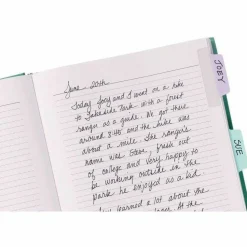 June 20th
Today Joey and I went on a hike
to Lakeside Park with a forest
ranger as a guide. We got there
around 8:45 and the hike was
about a mile. The ranger's
name was Steve, fresh out
of college and very happy to
be working outside in the
park he enjoyed as a kid.
learned a lot about the
JOEY
SUE